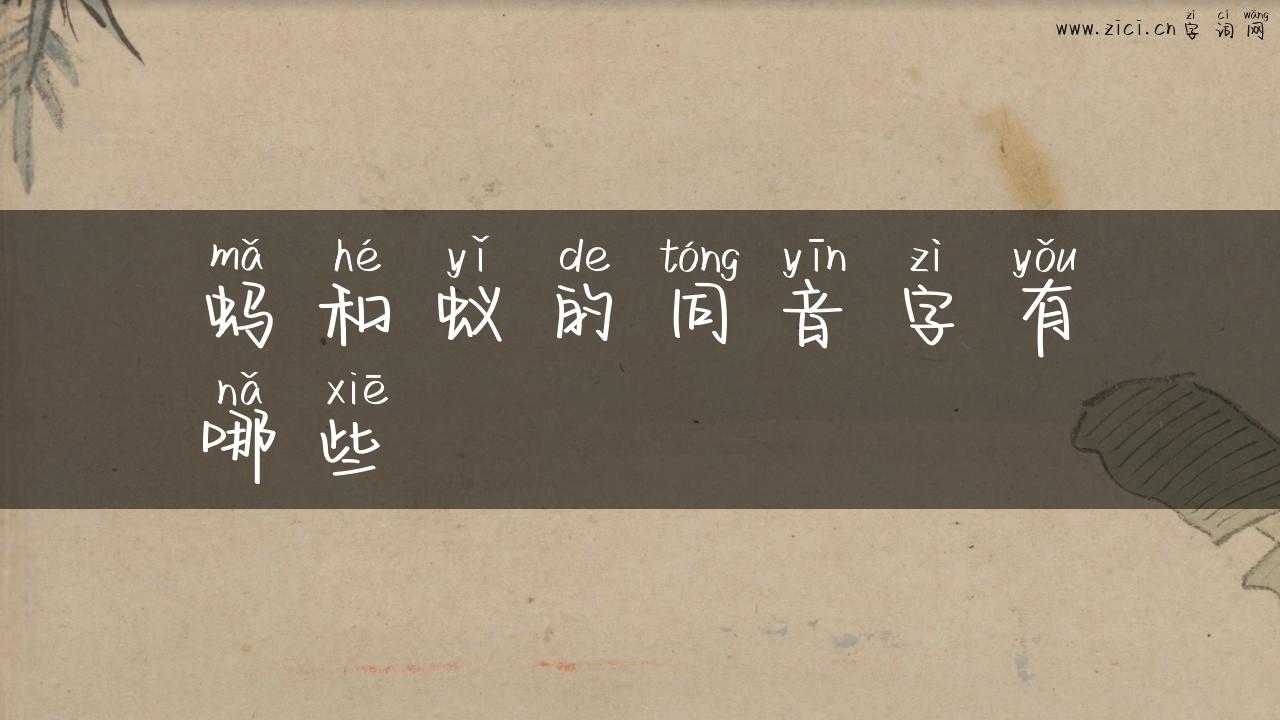 zì cí wǎng
www.zici.cn 字 词 网
mǎ hé yǐ de tóng yīn zì yǒu
蚂 和 蚁 的 同 音 字 有
nǎ xiē
哪 些